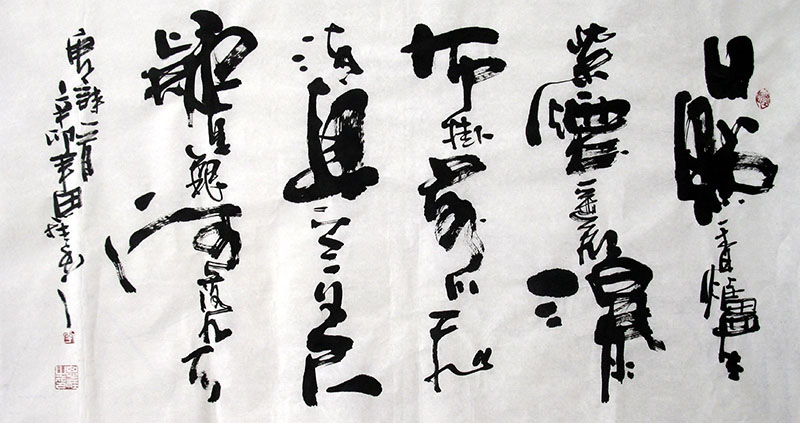 日照香爐生
紫煙遙看瀑
布掛前川飛
流直下三千尺
疑是銀河落九天
唐詩一首
辛卯年